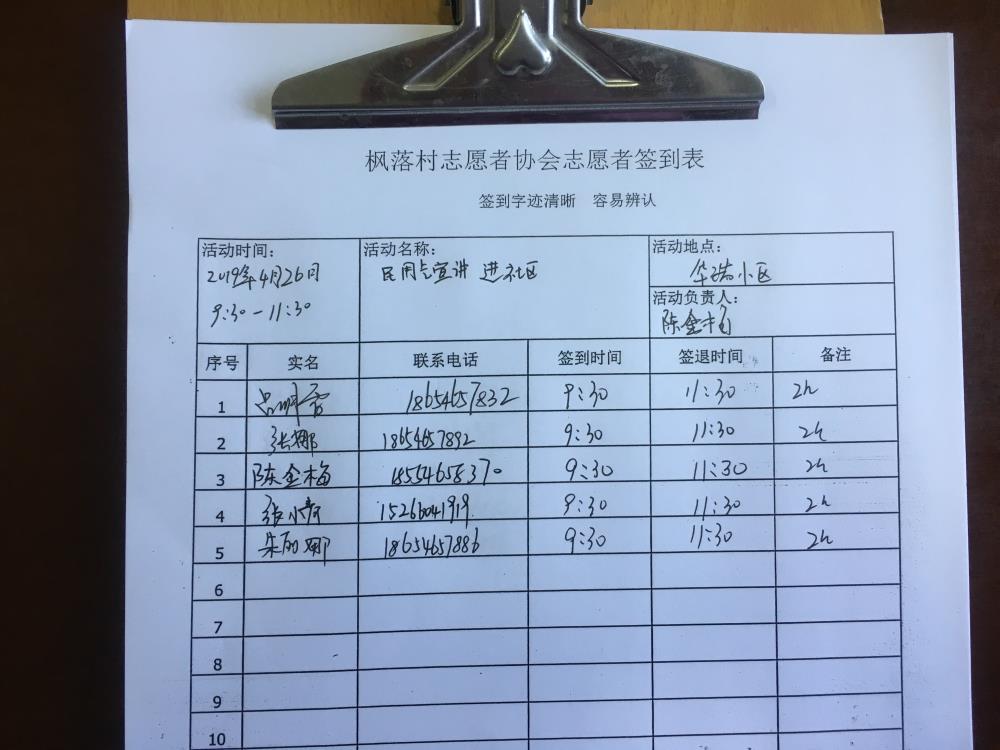 枫落村志愿者协会志愿者签到表
签到字迹清晰 容易辨认
活动时间: 活动名称: 活动地点:
2019年4月26日 民用气宣讲 进社区 华瑞小区
9:30-11:30
活动负责人:
陈金梅
序号 实名 联系电话 签到时间 签退时间 备注
1 18654657832 9:30 11:30 2h
2 张娜 18654657892 9:30 11:30 2h
3 陈金梅 18554658370 9:30 11:30 2h
4 张小青 15266041919 9:30 11:30 2h
5 朱丽娜 18654657886 9:30 11:30 2h
6
7
8
9
10